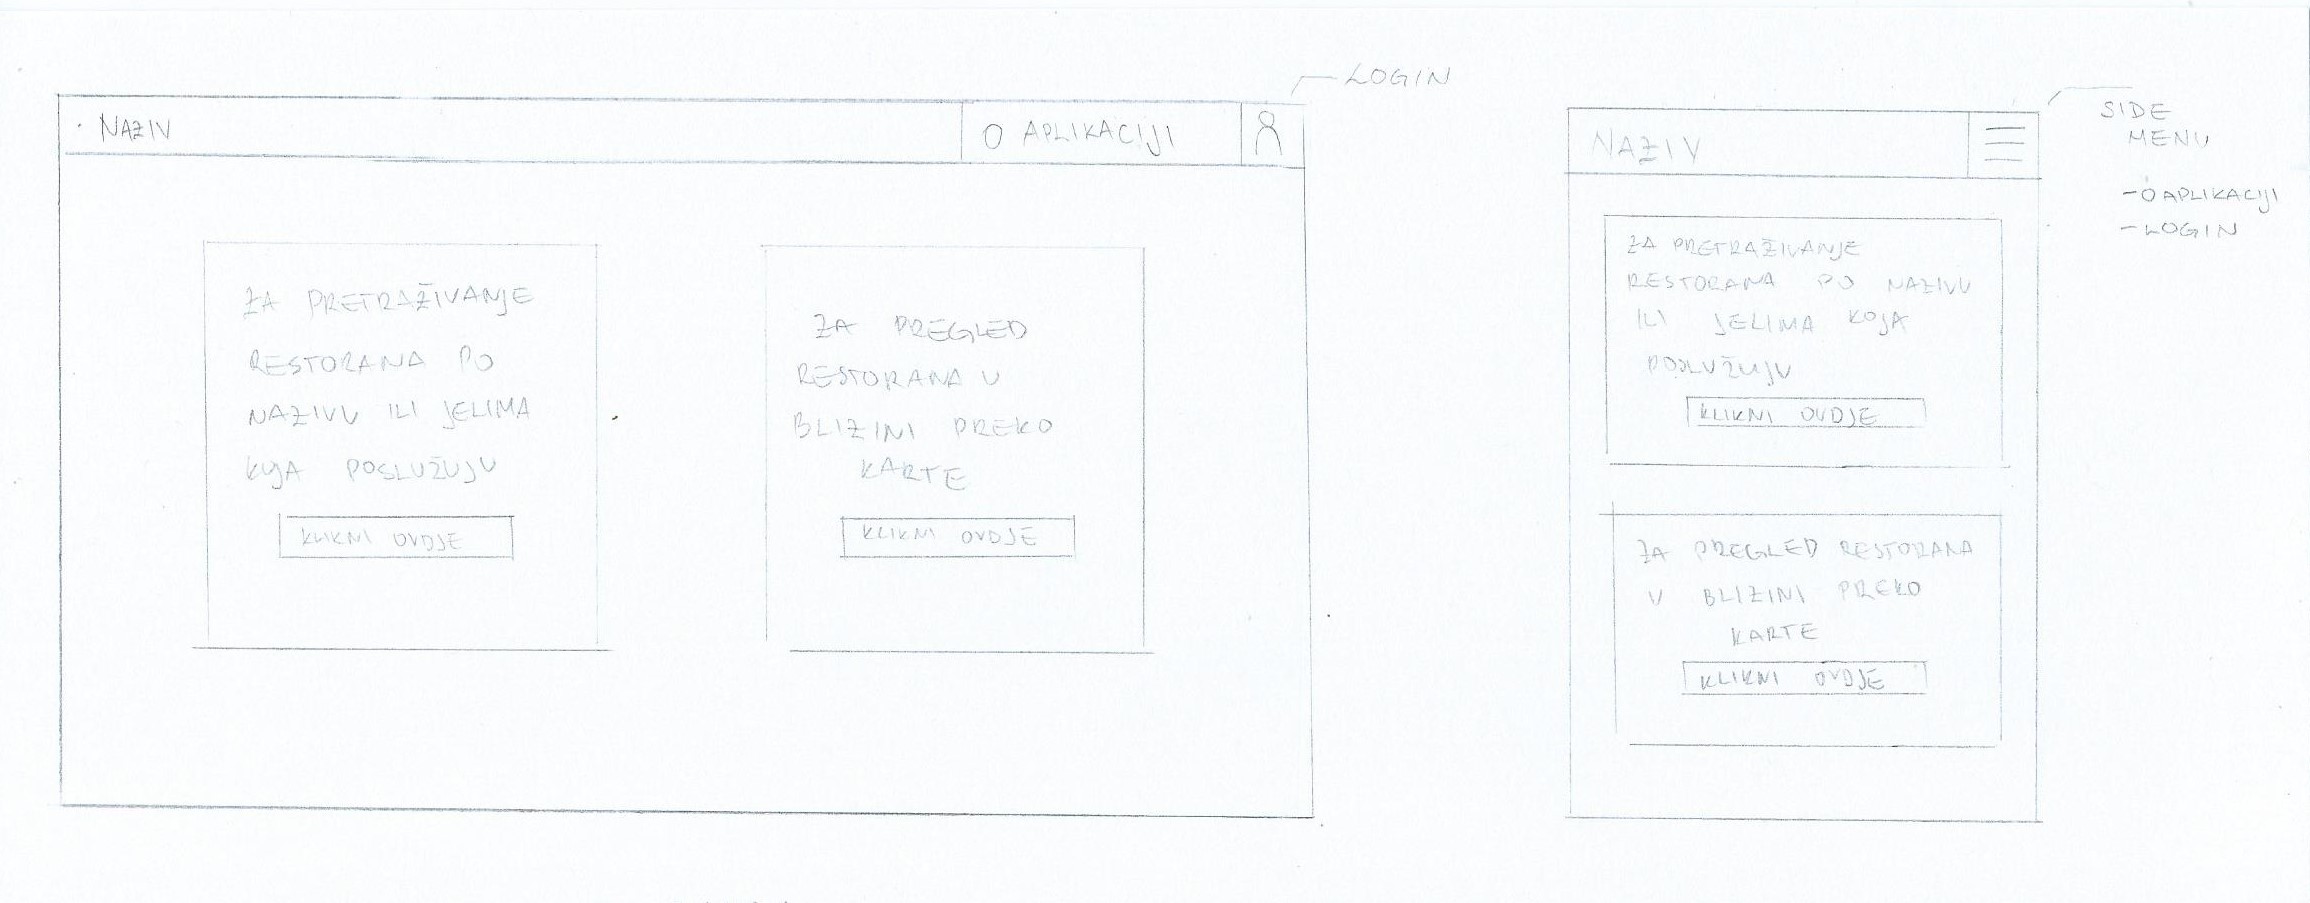 LOGIN
NAZIV
O APLIKACIJI
ZA PRETRAŽIVANJE
RESTORANA PO
NAZIVU ILI JELIMA
KOJA POSLUŽUJU
KLIKNI OVDJE
ZA PREGLED
RESTORANA U
BLIZINI PREKO
KARTE
KLIKNI OVDJE
NAZIV
SIDE
MENU
- O APLIKACIJI
- LOGIN
ZA PRETRAŽIVANJE
RESTORANA PO NAZIVU
ILI JELIMA KOJA
POSLUŽUJU
KLIKNI OVDJE
ZA PREGLED RESTORANA
U BLIZINI PREKO
KARTE
KLIKNI OVDJE